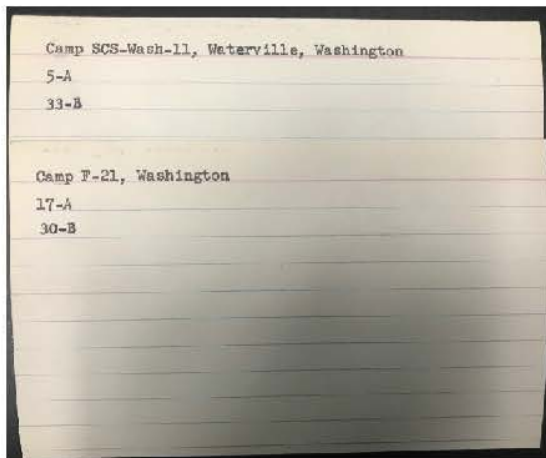 Camp SCS-Wash-11, Waterville, Washington
5-A
33-B
Camp F-21, Washington
17-A
30-B